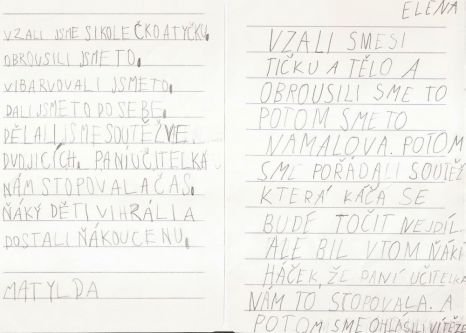 VZALI JSME SI KOLEČKO A TYČKU.
OBROUSILI JSME TO.
VIBARVOVALI JSME TO.
DALI JSME TO DO SEBE.
DĚLALI JSME SOUTĚŽ VE
DVOJICÍCH. PANÍ UČITELKA
NÁM STOPOVALA ČAS.
ŇÁKÝ DĚTI VIHRÁLI A
DOSTALI ŇÁKOU CENU.
MATYLDA
ELENA
VZALI SME SI
TIČKU A TĚLO A
OBROUSILI SME TO
POTOM SME TO
NAMALOVA. POTOM
SME POŘÁDALI SOUTĚŽ
KTERÁ KÁČA SE
BUDE TOČIT NEJDÍL.
ALE BIL V TOM ŇÁKÍ
HÁČEK, ŽE PANÍ UČITELKA
NÁM TO STOPOVALA. A
POTOM SME OHLÁSILI VÍTĚZE